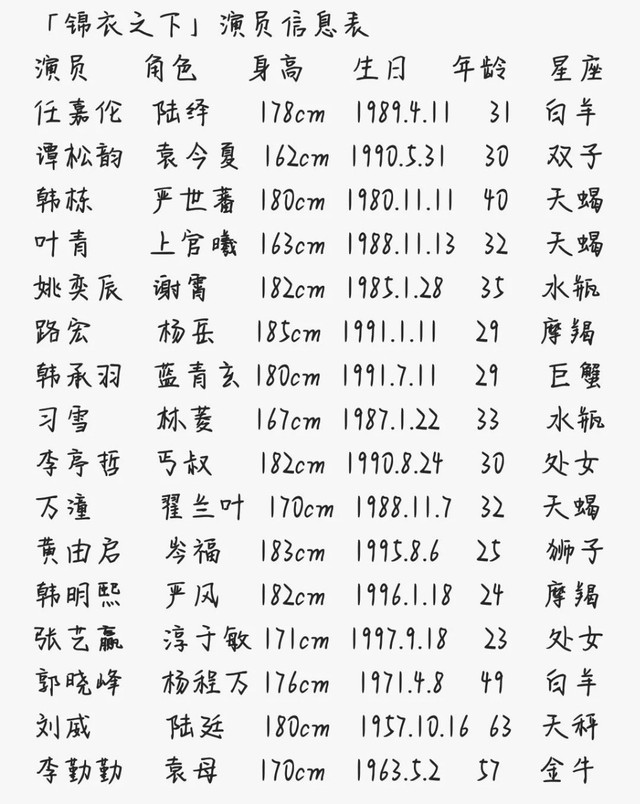 「锦衣之下」演员信息表
演员 角色 身高 生日 年龄 星座
任嘉伦 陆绎 178cm 1989.4.11 31 白羊
谭松韵 袁今夏 162cm 1990.5.31 30 双子
韩栋 严世蕃 180cm 1980.11.11 40 天蝎
叶青 上官曦 163cm 1988.11.13 32 天蝎
姚奕辰 谢霄 182cm 1985.1.28 35 水瓶
路宏 杨岳 185cm 1991.1.11 29 摩羯
韩承羽 蓝青玄 180cm 1991.7.11 29 巨蟹
习雪 林菱 167cm 1987.1.22 33 水瓶
李亭哲 丐叔 182cm 1990.8.24 30 处女
万潼 翟兰叶 170cm 1988.11.7 32 天蝎
黄由启 岑福 183cm 1995.8.6 25 狮子
韩明熙 严风 182cm 1996.1.18 24 摩羯
张艺赢 淳于敏 171cm 1997.9.18 23 处女
郭晓峰 杨程万 176cm 1971.4.8 49 白羊
刘威 陆廷 180cm 1957.10.16 63 天秤
李勤勤 袁母 170cm 1963.5.2 57 金牛